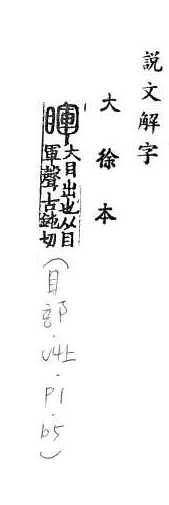 説文解字
大徐本
睴
大目出也从目
軍聲古鈍切
(目部.V4上.P1.b5)